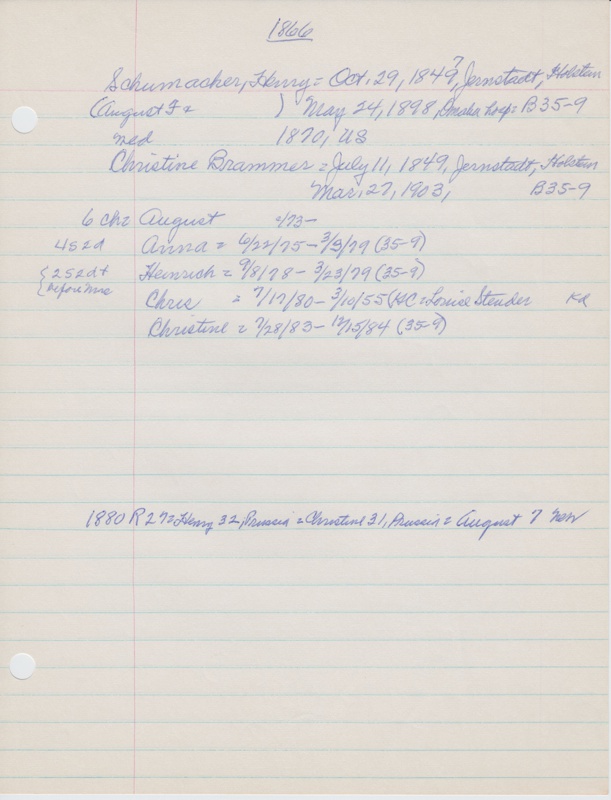 1866
Schumacher, Henry = Oct. 29, 1849?, Jernstadt, Holstein
(August F = ) May 24, 1898, Omaha hosp = B35-9
med 1870, US
Christine Brammer = July 11, 1849, Jernstadt, Holstein
Mar. 27, 1903, B35-9
6 ch = August /73-
4s 2d Anna = 6/22/75 - 3/3/79 (35-9)
{2s 2d + Heinrich = 9/8/78 - 3/23/79 (35-9)
before Chris = 7/17/80 - 3/10/55 (KC = Louise Stender
Christine = 7/28/83 - 12/15/84 (35-9)
1880 R 27 = Henry 32, Prussia = Christine 31, Prussia = August 7